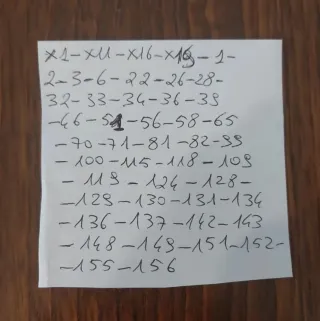 X1-X11-X16-X19-1-
2-3-6-22-26-28-
32-33-34-36-39
-46-51-56-58-65
-70-71-81-82-99
-100-115-118-109
-119-124-128-
-129-130-131-134
-136-137-142-143
-148-149-151-152-
-155-156